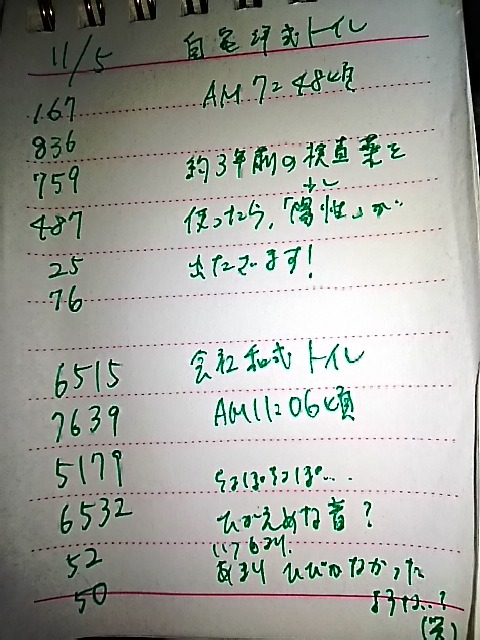 11/5 自宅洋式トイレ
167 AM 7:48頃
836
759 約3年前の検査薬を
487 使ったら、「陽性」が
25 出たでます!
76
6515 会社和式トイレ
7639 AM11:06頃
5179 ちょぼちょぼ…
6532 ひかえめな音?
いつもより、
52 あまりひびかなかった
50 ような..?
(笑)